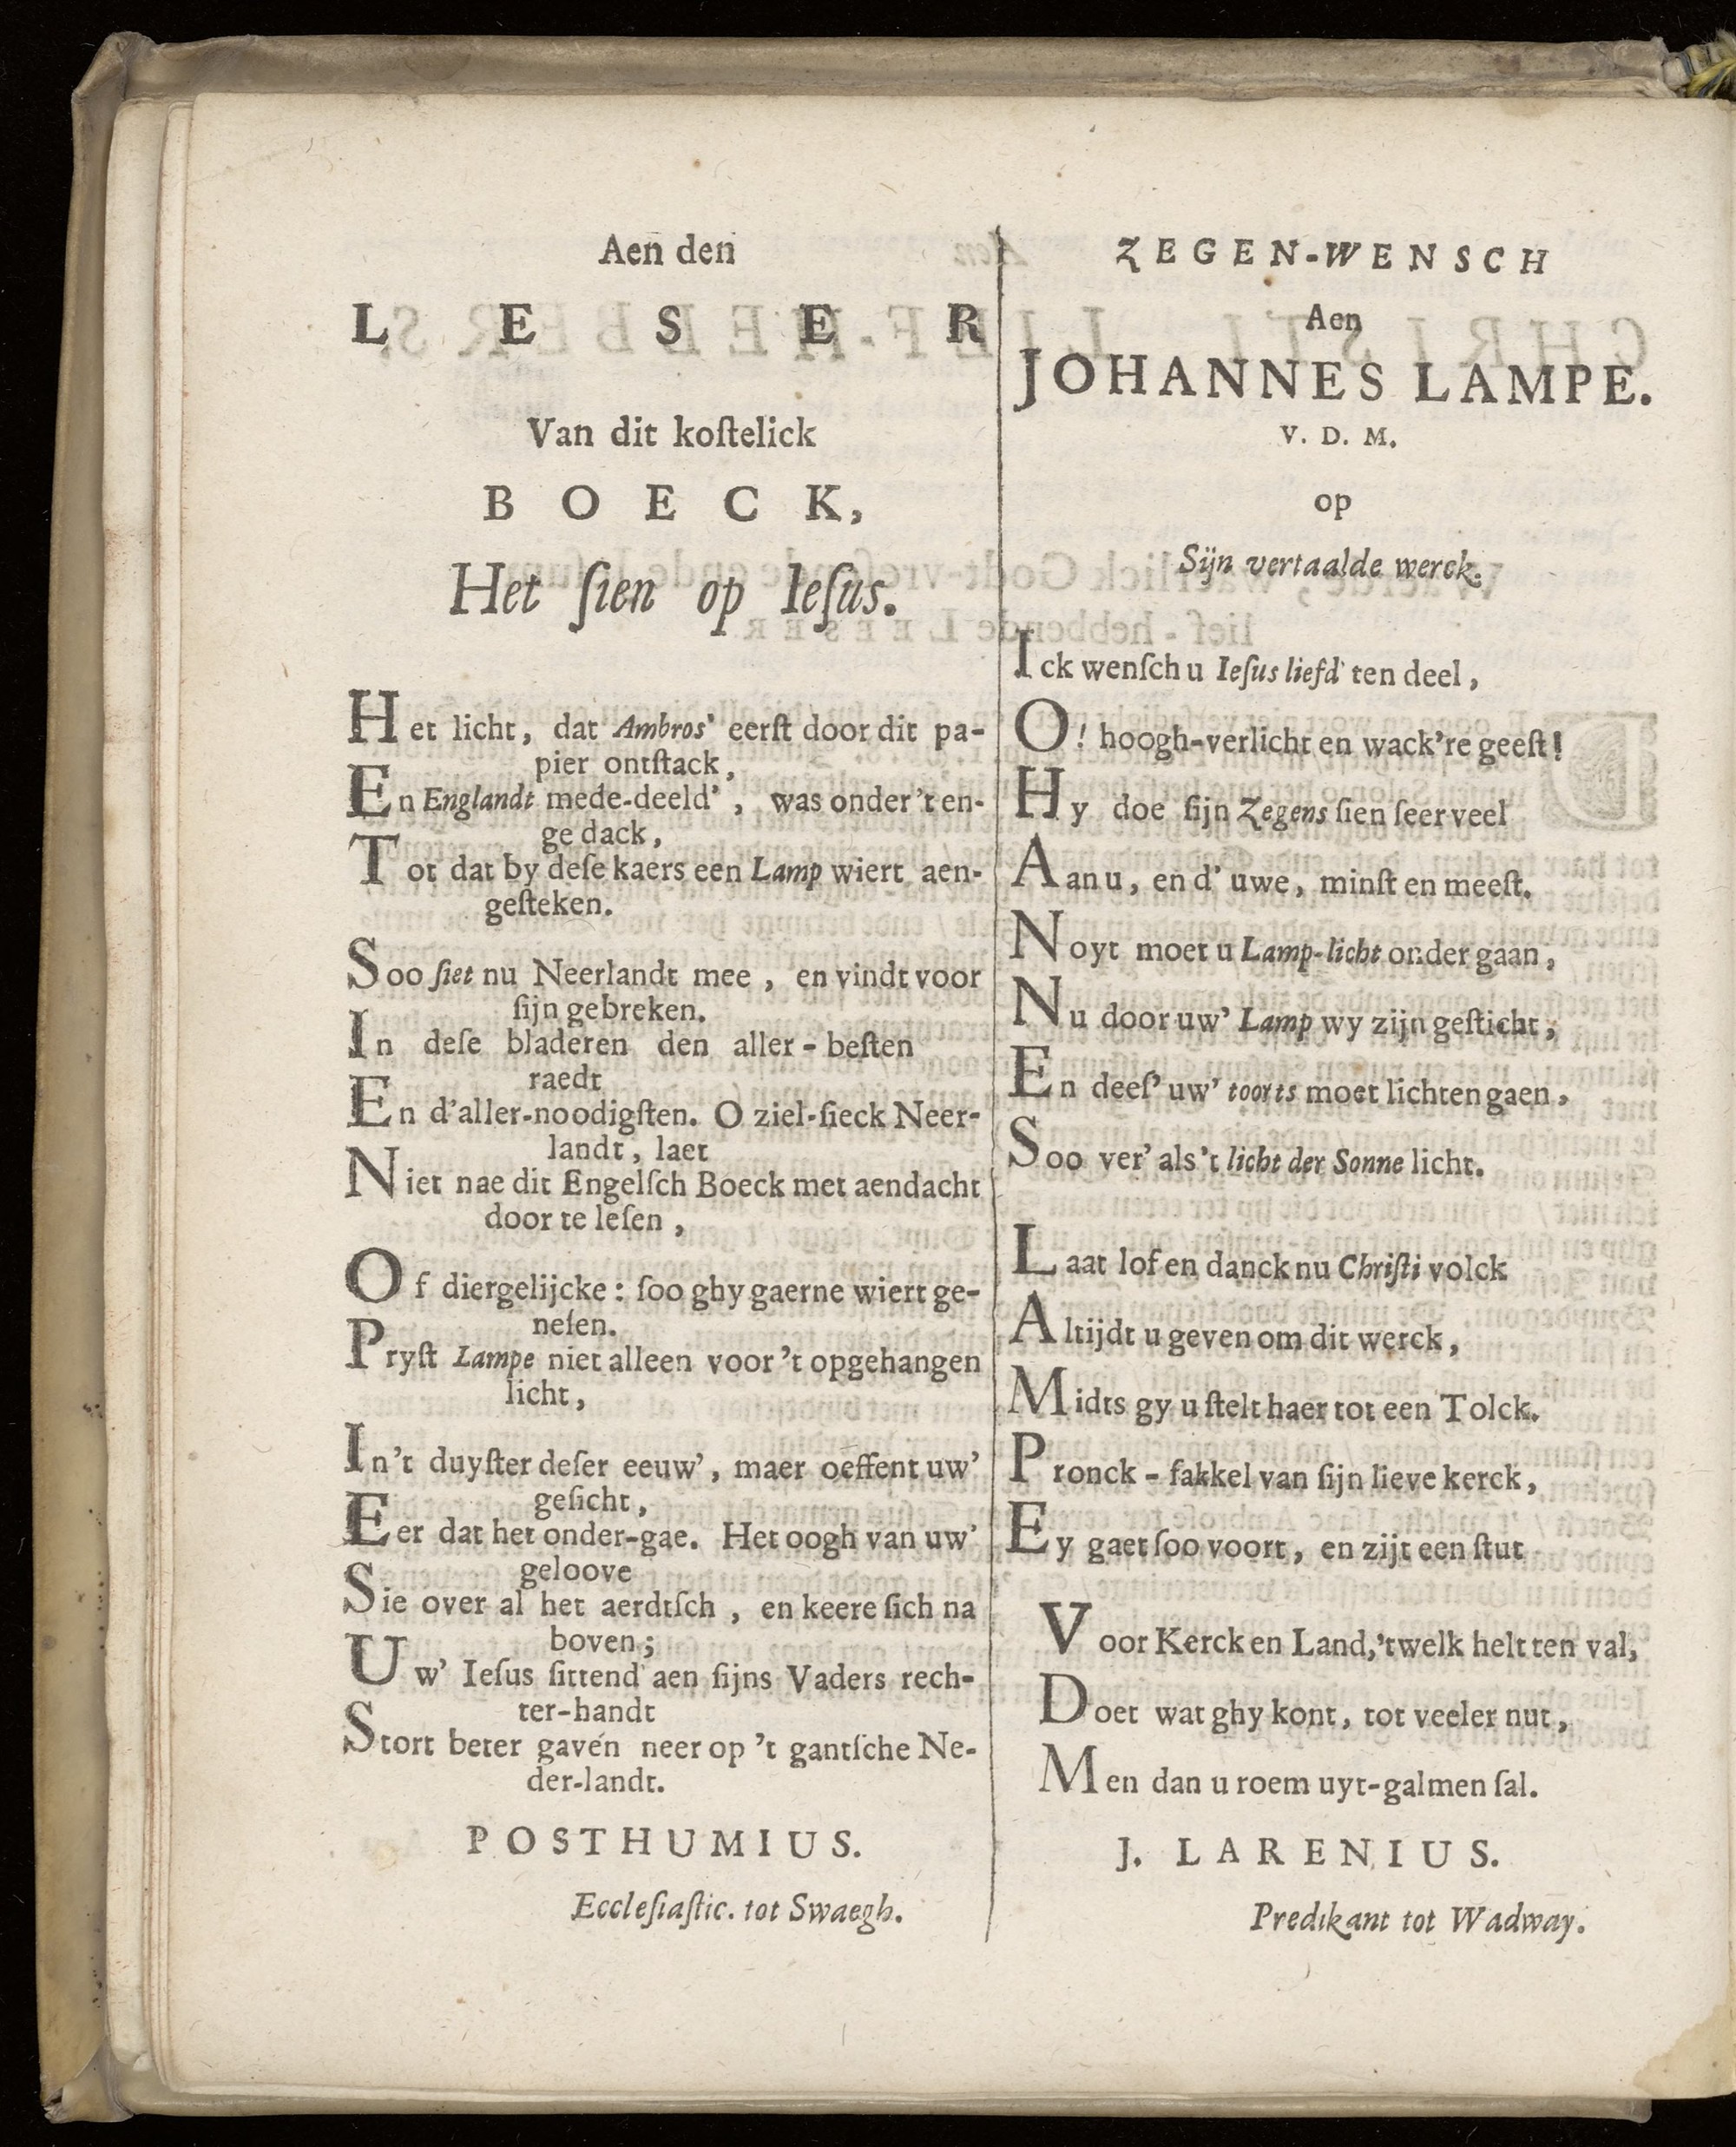 Aen den
LESER
Van dit koſtelick
BOECK,
Het ſien op Ieſus.
Het licht, dat Ambros' eerſt door dit pa-
pier ontſtack,
En Englandt mede-deeld', was onder 't en-
ge dack,
Tot dat by deſe kaers een Lamp wiert aen-
geſteken.
Soo ſiet nu Neerlandt mee, en vindt voor
ſijn gebreken.
In deſe bladeren den aller-beſten
raedt
En d'aller-noodigſten. O ziel-ſieck Neer-
landt, laet
Niet nae dit Engelſch Boeck met aendacht
door te leſen,
Of diergelijcke: ſoo ghy gaerne wiert ge-
neſen.
Pryſt Lampe niet alleen voor 't opgehangen
licht,
In 't duyſter deſer eeuw', maer oeffent uw'
geſicht,
Eer dat het onder-gae. Het oogh van uw'
geloove
Sie over al het aerdtſch, en keere ſich na
boven;
Uw' Ieſus ſittend aen ſijns Vaders rech-
ter-handt
Stort beter gaven neer op 't gantſche Ne-
der-landt.
POSTHUMIUS.
Eccleſiaſtic. tot Swaegh.
ZEGEN-WENSCH
Aen
JOHANNES LAMPE.
V. D. M.
op
Sijn vertaalde werck.
Ick wenſch u Ieſus liefd' ten deel,
O! hoogh-verlicht en wack're geeſt!
Hy doe ſijn Zegens ſien ſeer veel
Aan u, en d' uwe, minſt en meeſt.
Noyt moet u Lamp-licht onder gaan,
Nu door uw' Lamp wy zijn geſticht;
En deeſ' uw' toorts moet lichten gaen,
Soo ver' als 't licht der Sonne licht.
Laat lof en danck nu Chriſti volck
Altijdt u geven om dit werck,
Midts gy u ſtelt haer tot een Tolck.
Pronck-fakkel van ſijn lieve kerck,
Ey gaet ſoo voort, en zijt een ſtut
Voor Kerck en Land, 't welk helt ten val,
Doet wat ghy kont, tot veeler nut,
Men dan u roem uyt-galmen ſal.
J. LARENIUS.
Predikant tot Wadway.